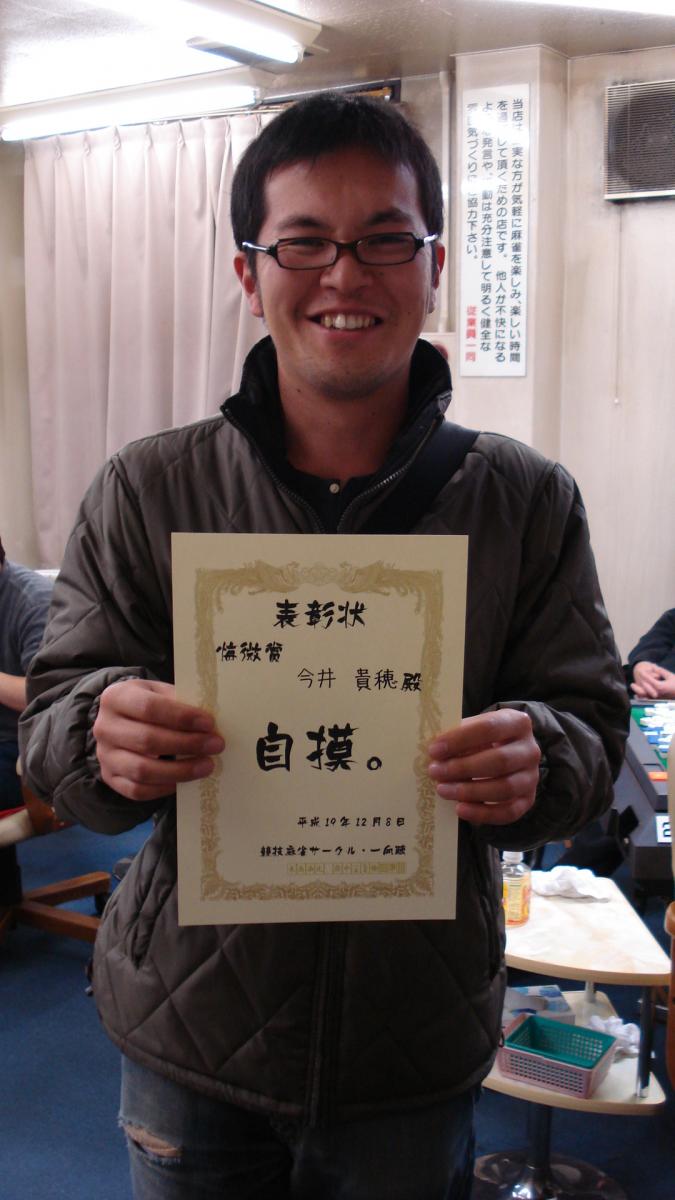 当店は 実な方が気軽に麻雀を楽しみ、楽しい時間
を過 して頂くための店です。 他人が不快になる
よ 発言や 動は充分注意して明るく健全な
雰囲気づくりに 協力下さい。
従業員一同
表彰状
悔微賞
今井 貴穂殿
自摸。
平成19年12月8日
競技麻雀サークル・一向聴